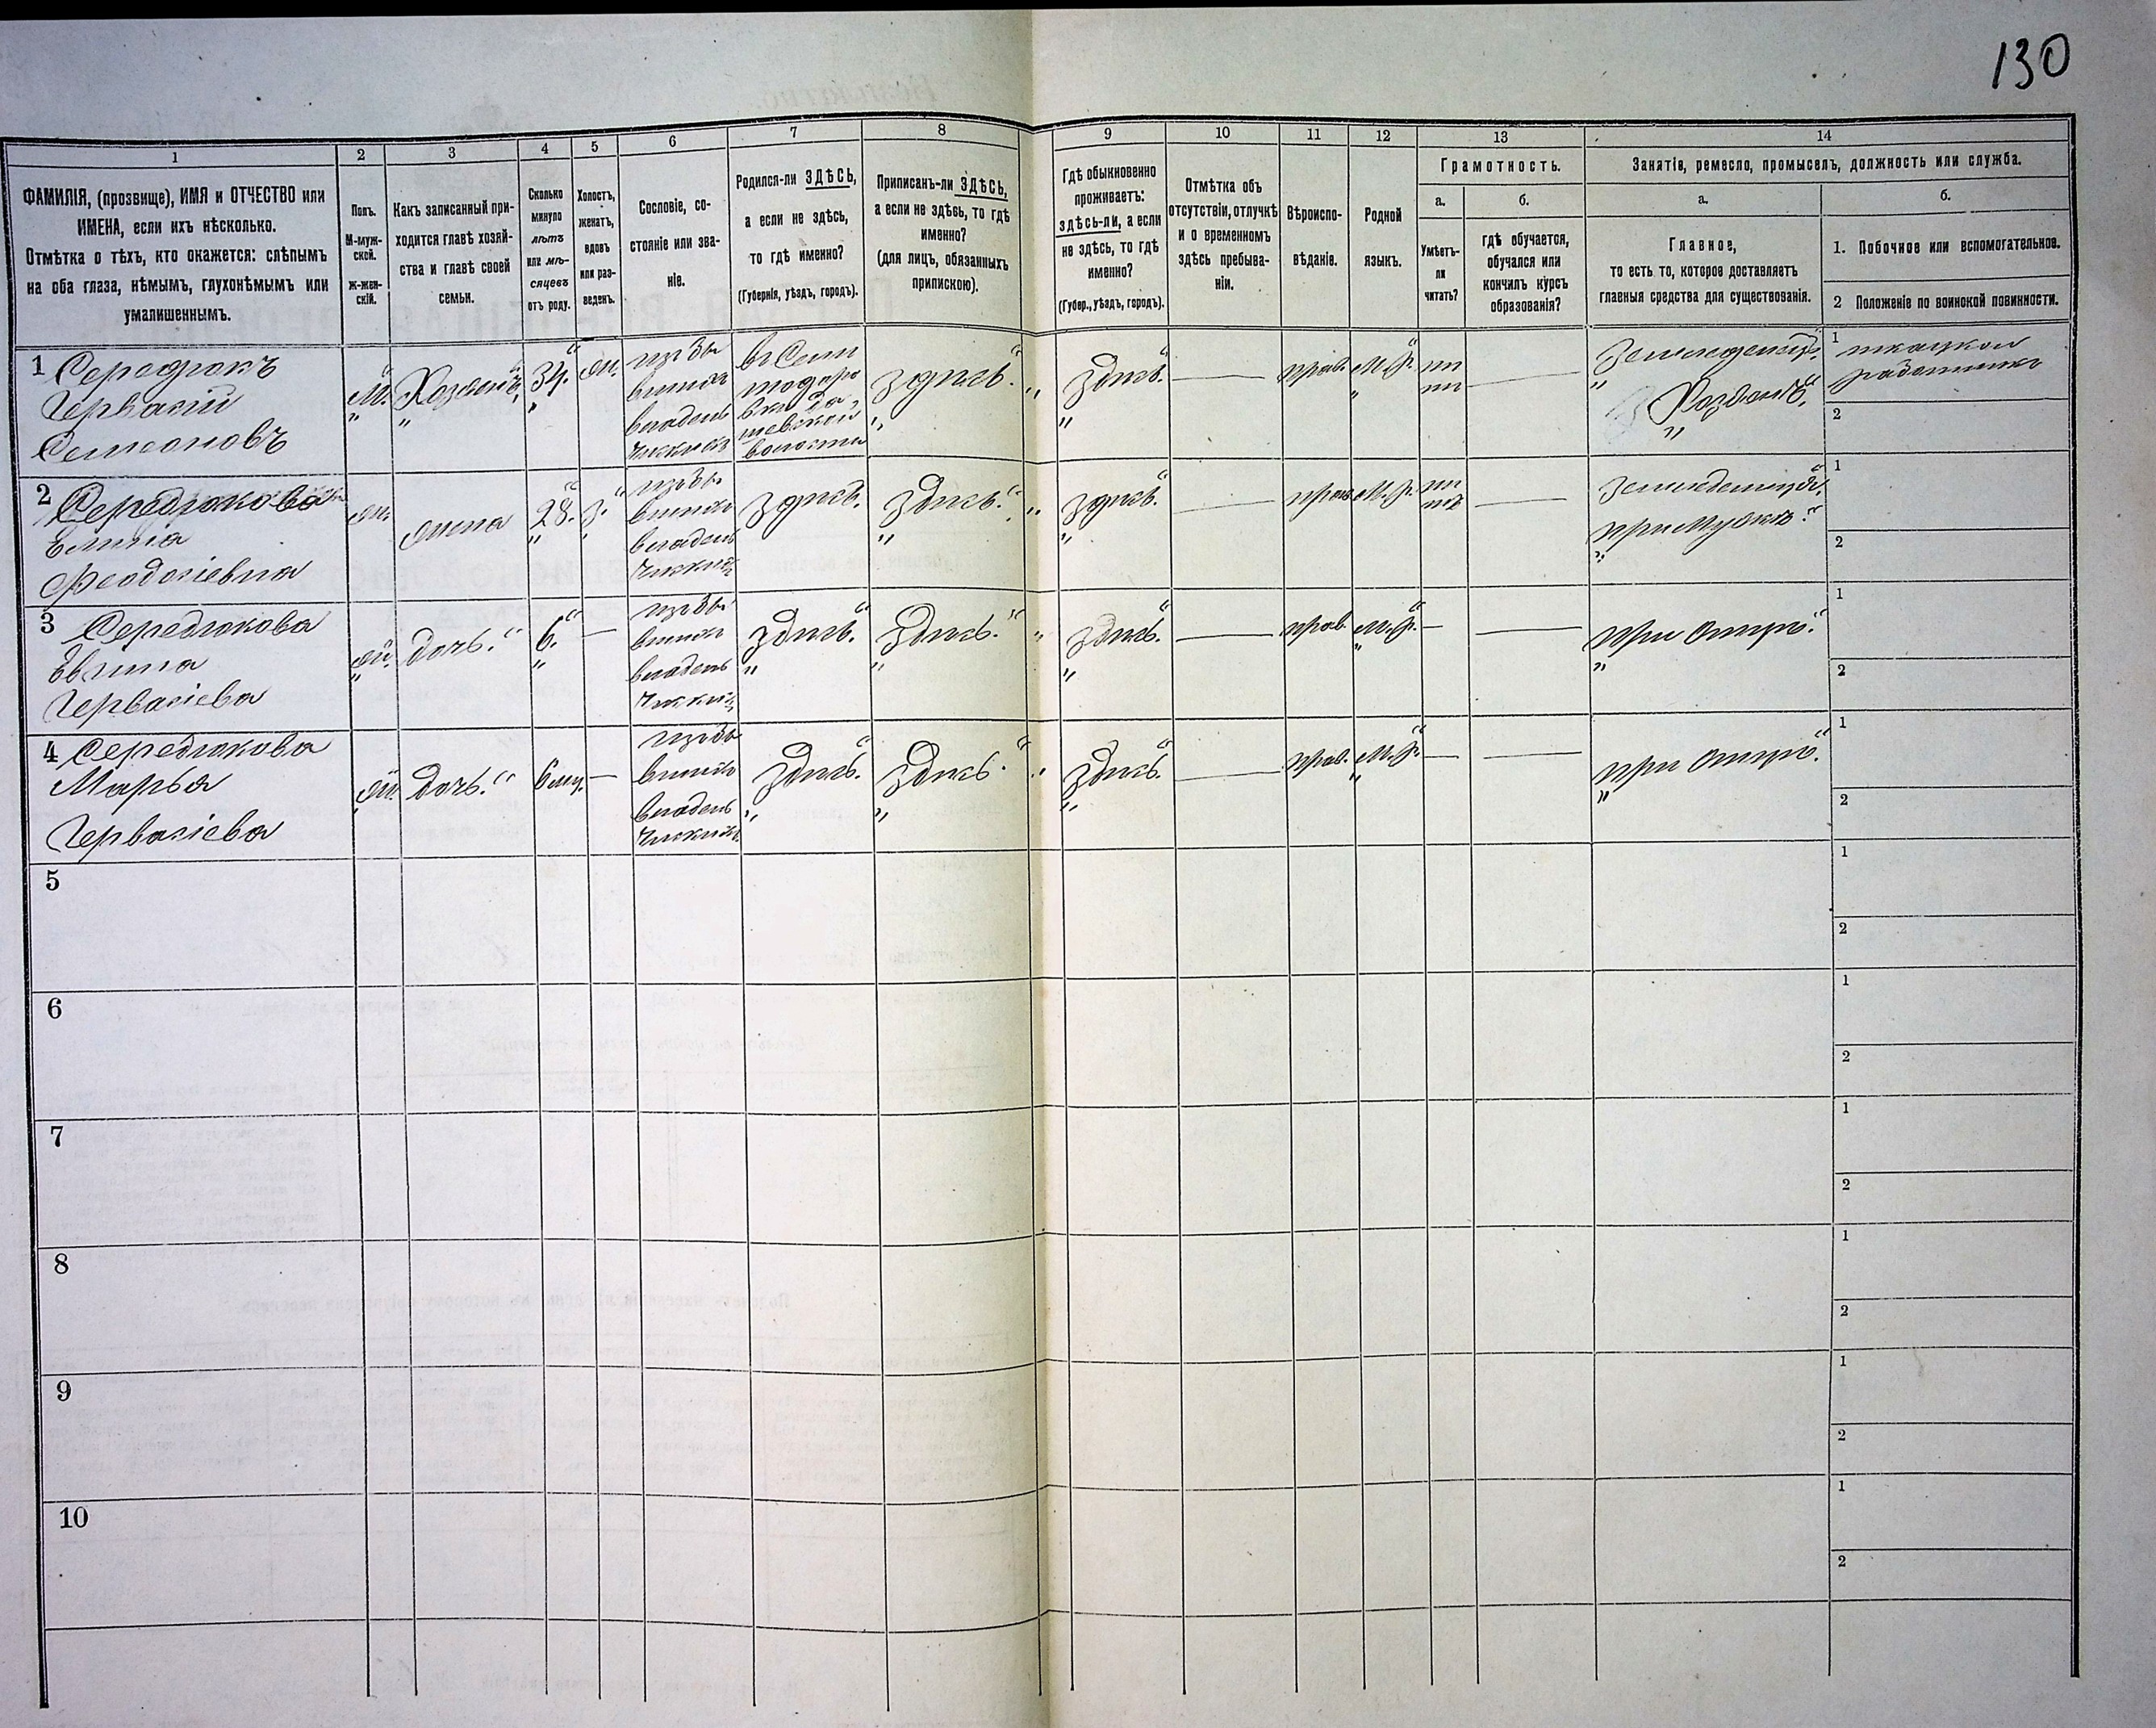 130
1
2
3
4
5
6
7
8
9
10
11
12
13
14
ФАМИЛІЯ, (прозвище), ИМЯ и ОТЧЕСТВО или
ИМЕНА, если ихъ нѣсколько.
Отмѣтка о тѣхъ, кто окажется: слѣпымъ
на оба глаза, нѣмымъ, глухонѣмымъ или
умалишеннымъ.
Полъ.
М-муж-
ской.
ж-жен-
скій.
Какъ записанный при-
ходится главѣ хозяй-
ства и главѣ своей
семьи.
Сколько
минуло
лѣтъ
или мѣ-
сяцевъ
отъ роду.
Холостъ,
женатъ,
вдовъ
или раз-
веденъ.
Сословіе, со-
стояніе или зва-
ніе.
Родился-ли ЗДѢСЬ,
а если не здѣсь,
то гдѣ именно?
(Губернія, уѣздъ, городъ).
Приписанъ-ли ЗДѢСЬ,
а если не здѣсь, то гдѣ
именно?
(для лицъ, обязанныхъ
припискою).
Гдѣ обыкновенно
проживаетъ:
здѣсь-ли, а если
не здѣсь, то гдѣ
именно?
(Губер., уѣздъ, городъ).
Отмѣтка объ
отсутствіи, отлучкѣ
и о временномъ
здѣсь пребыва-
ніи.
Вѣроиспо-
вѣданіе.
Родной
языкъ.
Грамотность.
а.
Умѣетъ-
ли
читать?
б.
гдѣ обучается,
обучался или
кончилъ курсъ
образованія?
Занятія, ремесло, промыселъ, должность или служба.
а.
Главное,
то есть то, которое доставляетъ
главныя средства для существованія.
б.
1. Побочное или вспомогательное.
2 Положеніе по воинской повинности.
1 Середюкъ
Гервасій
Семеоновъ
М.
Хозяинъ
34.
ж.
изъ бы
вших
владель
ческих
в Сели
волости
здесь.
здесь.
прав.
М.р.
—
Хозяинъ
1
2
2 Середюкова
Феодосіевна
ж.
жена
28.
з.
изъ бы
вших
владель
ческих
здесь.
здесь.
здесь.
прав.
М.р.
—
при мужъ
1
2
3 Середюкова
Евгина
Гервасіева
ж.
дочь.
6.
—
изъ бы
вших
владель
здесь.
здесь.
здесь.
прав.
М.р.
—
—
при отцъ.
1
2
4 Середюкова
Марья
Гервасіева
ж.
дочь.
6 мц.
—
изъ бы
вших
владель
здесь.
здесь.
здесь.
прав.
М.р.
—
—
при отцъ.
1
2
5
1
2
6
1
2
7
1
2
8
1
2
9
1
2
10
1
2